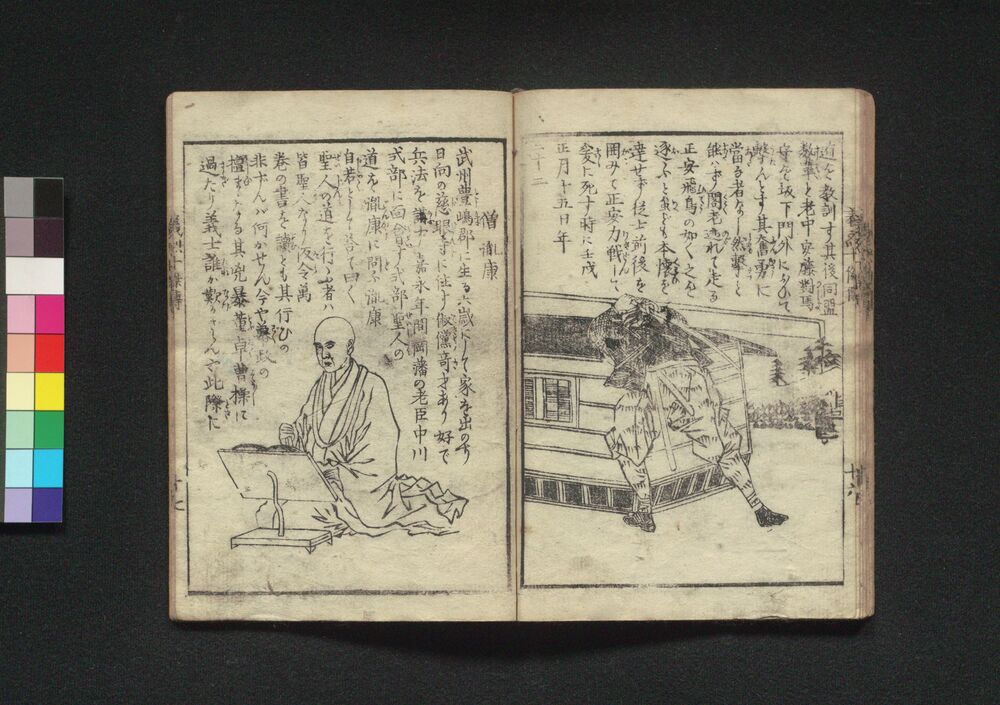 道を教訓す其後同盟
数輩と老中安藤對馬
守を坂下門外にむかひて
撃んとす其奮勇に
當る者なし然撃こと
能はず閣老逃れて走る
正安飛鳥の如く之を
逐ふと雖も本懐を
達せず從士前後を
囲みて正安力戦して
爰に死す時に壬戌
正月十五日年
二十二
僧胤康
武州豊嶋郡に生る六歳にして家を出のち
日向の慈眼寺に住す俶儻奇才あり好で
兵法を講ず嘉永年間岡藩の老臣中川
式部に面會す式部聖人の
道を胤康に問ふ胤康
自若として答て曰く
聖人の道を行ふ者ハ
皆聖人なり仮令万
巻の書を讀とも其行ひの
非ずんバ何かせん今や幕政の
檀まゝなる其兇暴董卓曹操に
過たり義士誰か歎かざらんや此際に